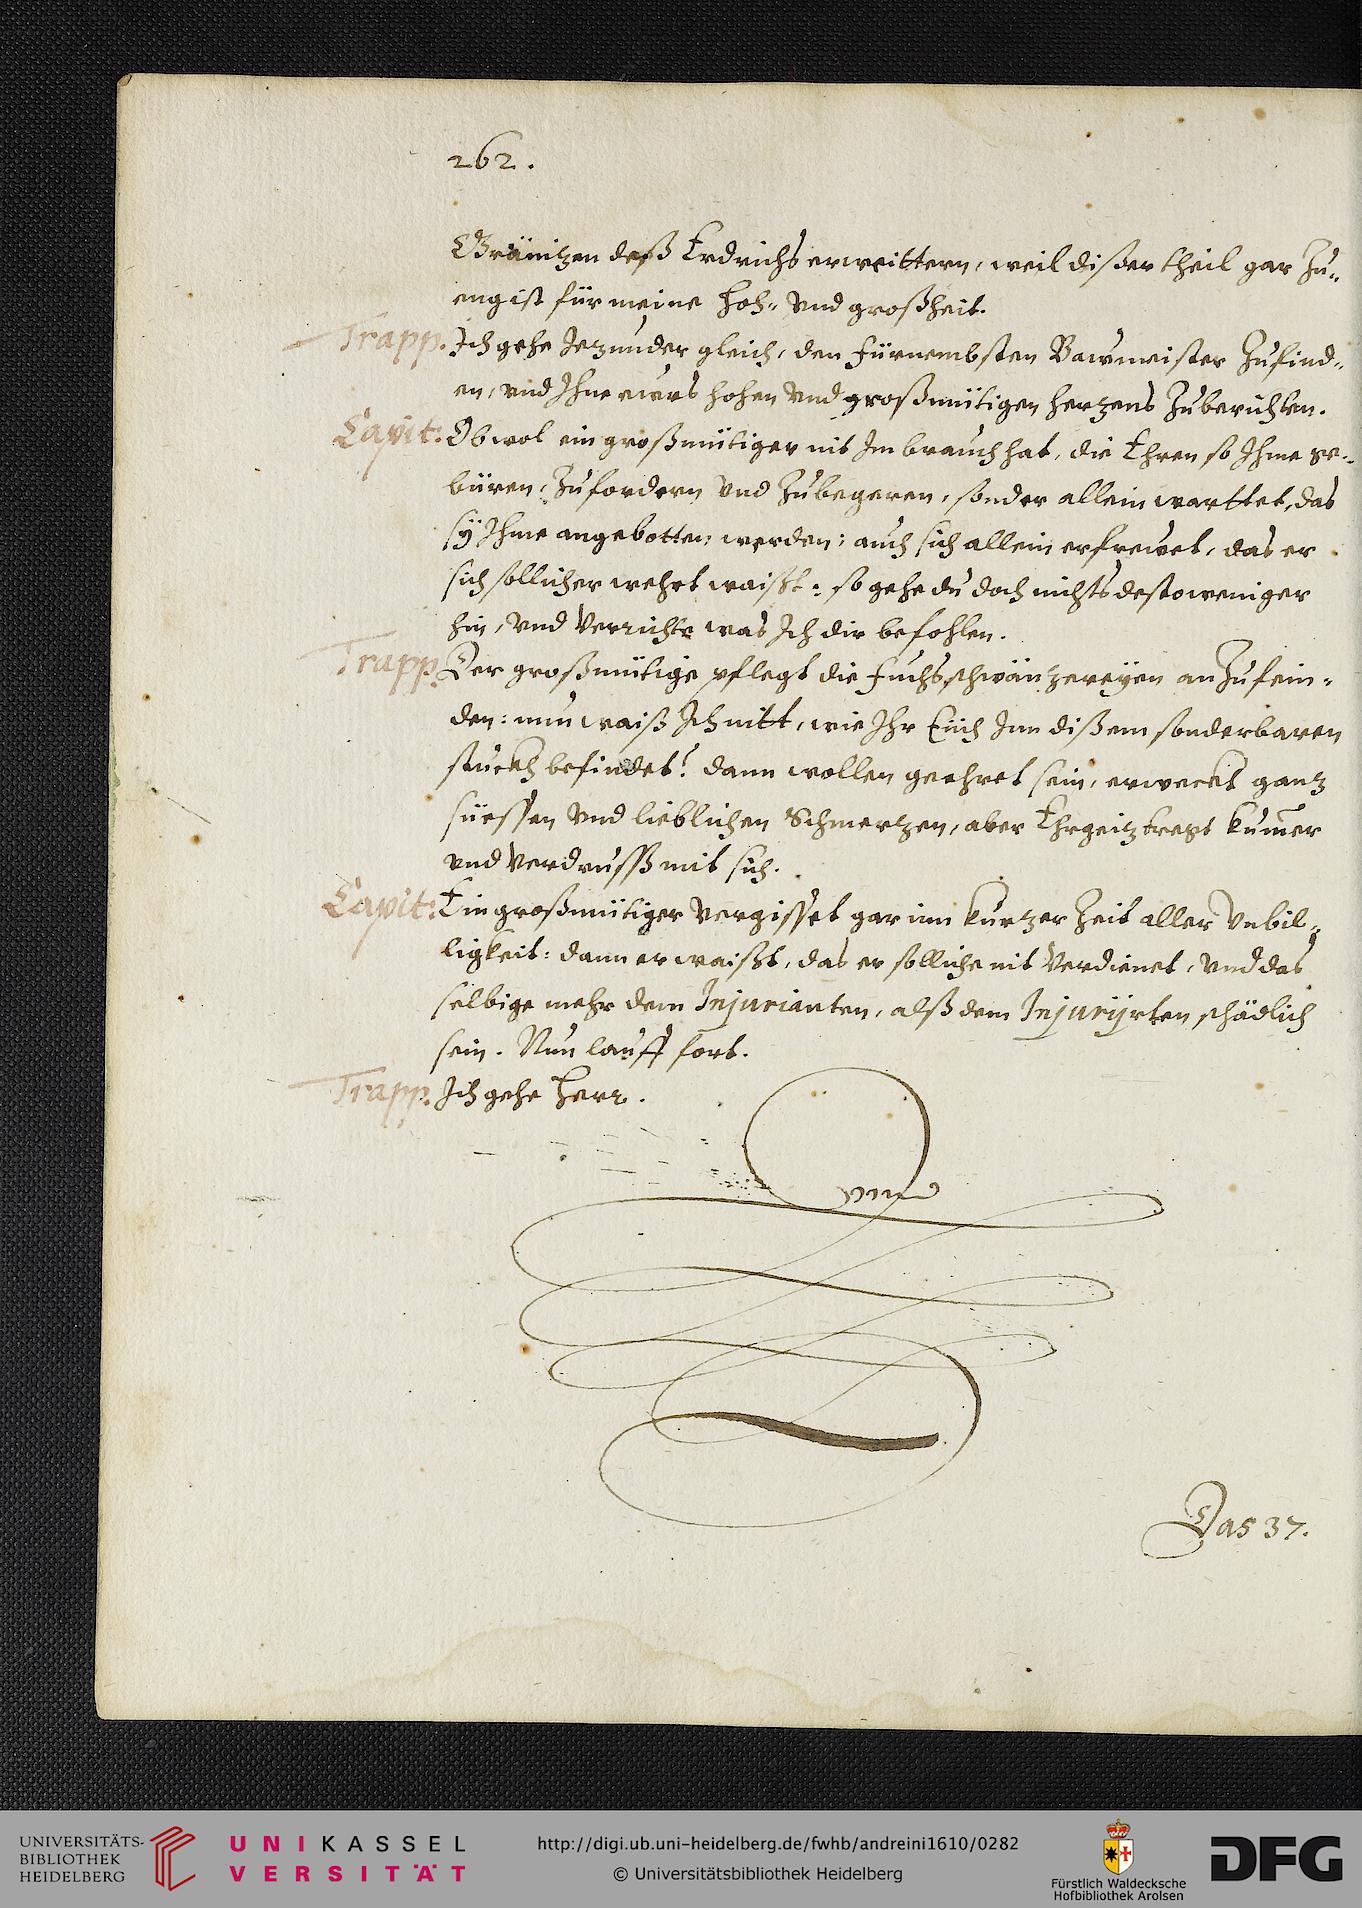 262.
Gränitzen deß Erdrichs erweittern, weil dißer theil gar Zu„
eng ist für meine Hoh„ vnd großheit.
Trapp. Ich gehe Jezunder gleich, den fürnembsten Bawmeister Zufind„
en, vnd Ihne ewrs hohen vnd großmütigen hertzens Zuberichten.
Capit: Ob wol ein großmütiger nit Im brauch hat, die Ehren so Ihme ge„
büren, Zufordern vnd Zubegeren, sonder allein warttet, das
sÿ Ihme angebotten werden: auch sich allein erfrewet, das er
sich sollicher wehrt waißt: so gehe du doch nichts destoweniger
hin, vnd verrichte was Ich dir befohlen.
Trapp. Der großmütige pflegt die fuchsschwäntzereÿen anZufein„
den: nun waiß Ich nitt, wie Ihr Euch Inn dißem sonderbaren
stuckh befindet? dann wollen geehret sein, erweckt gantz
süessen vnd lieblichen Schmertzen, aber Ehrgeitz tregt kum̄er
vnd verdruss mit sich.
Capit: Ein großmütiger vergisset gar inn kurtzer Zeit aller vnbil„
ligkeit: dann er waißt, das er solliche nit verdienet, vnd das
selbige mehr dem Injurianten, alß dem Injurijrten schädlich
sein. Nun lauff fort.
Trapp. Ich gehe Herr.
Das 37.
UNIVERSITÄTS-
BIBLIOTHEK
HEIDELBERG
UNIKASSEL
VERSITÄT
http://digi.ub.uni-heidelberg.de/fwhb/andreini1610/0282
© Universitätsbibliothek Heidelberg
Fürstlich Waldecksche
Hofbibliothek Arolsen
DFG